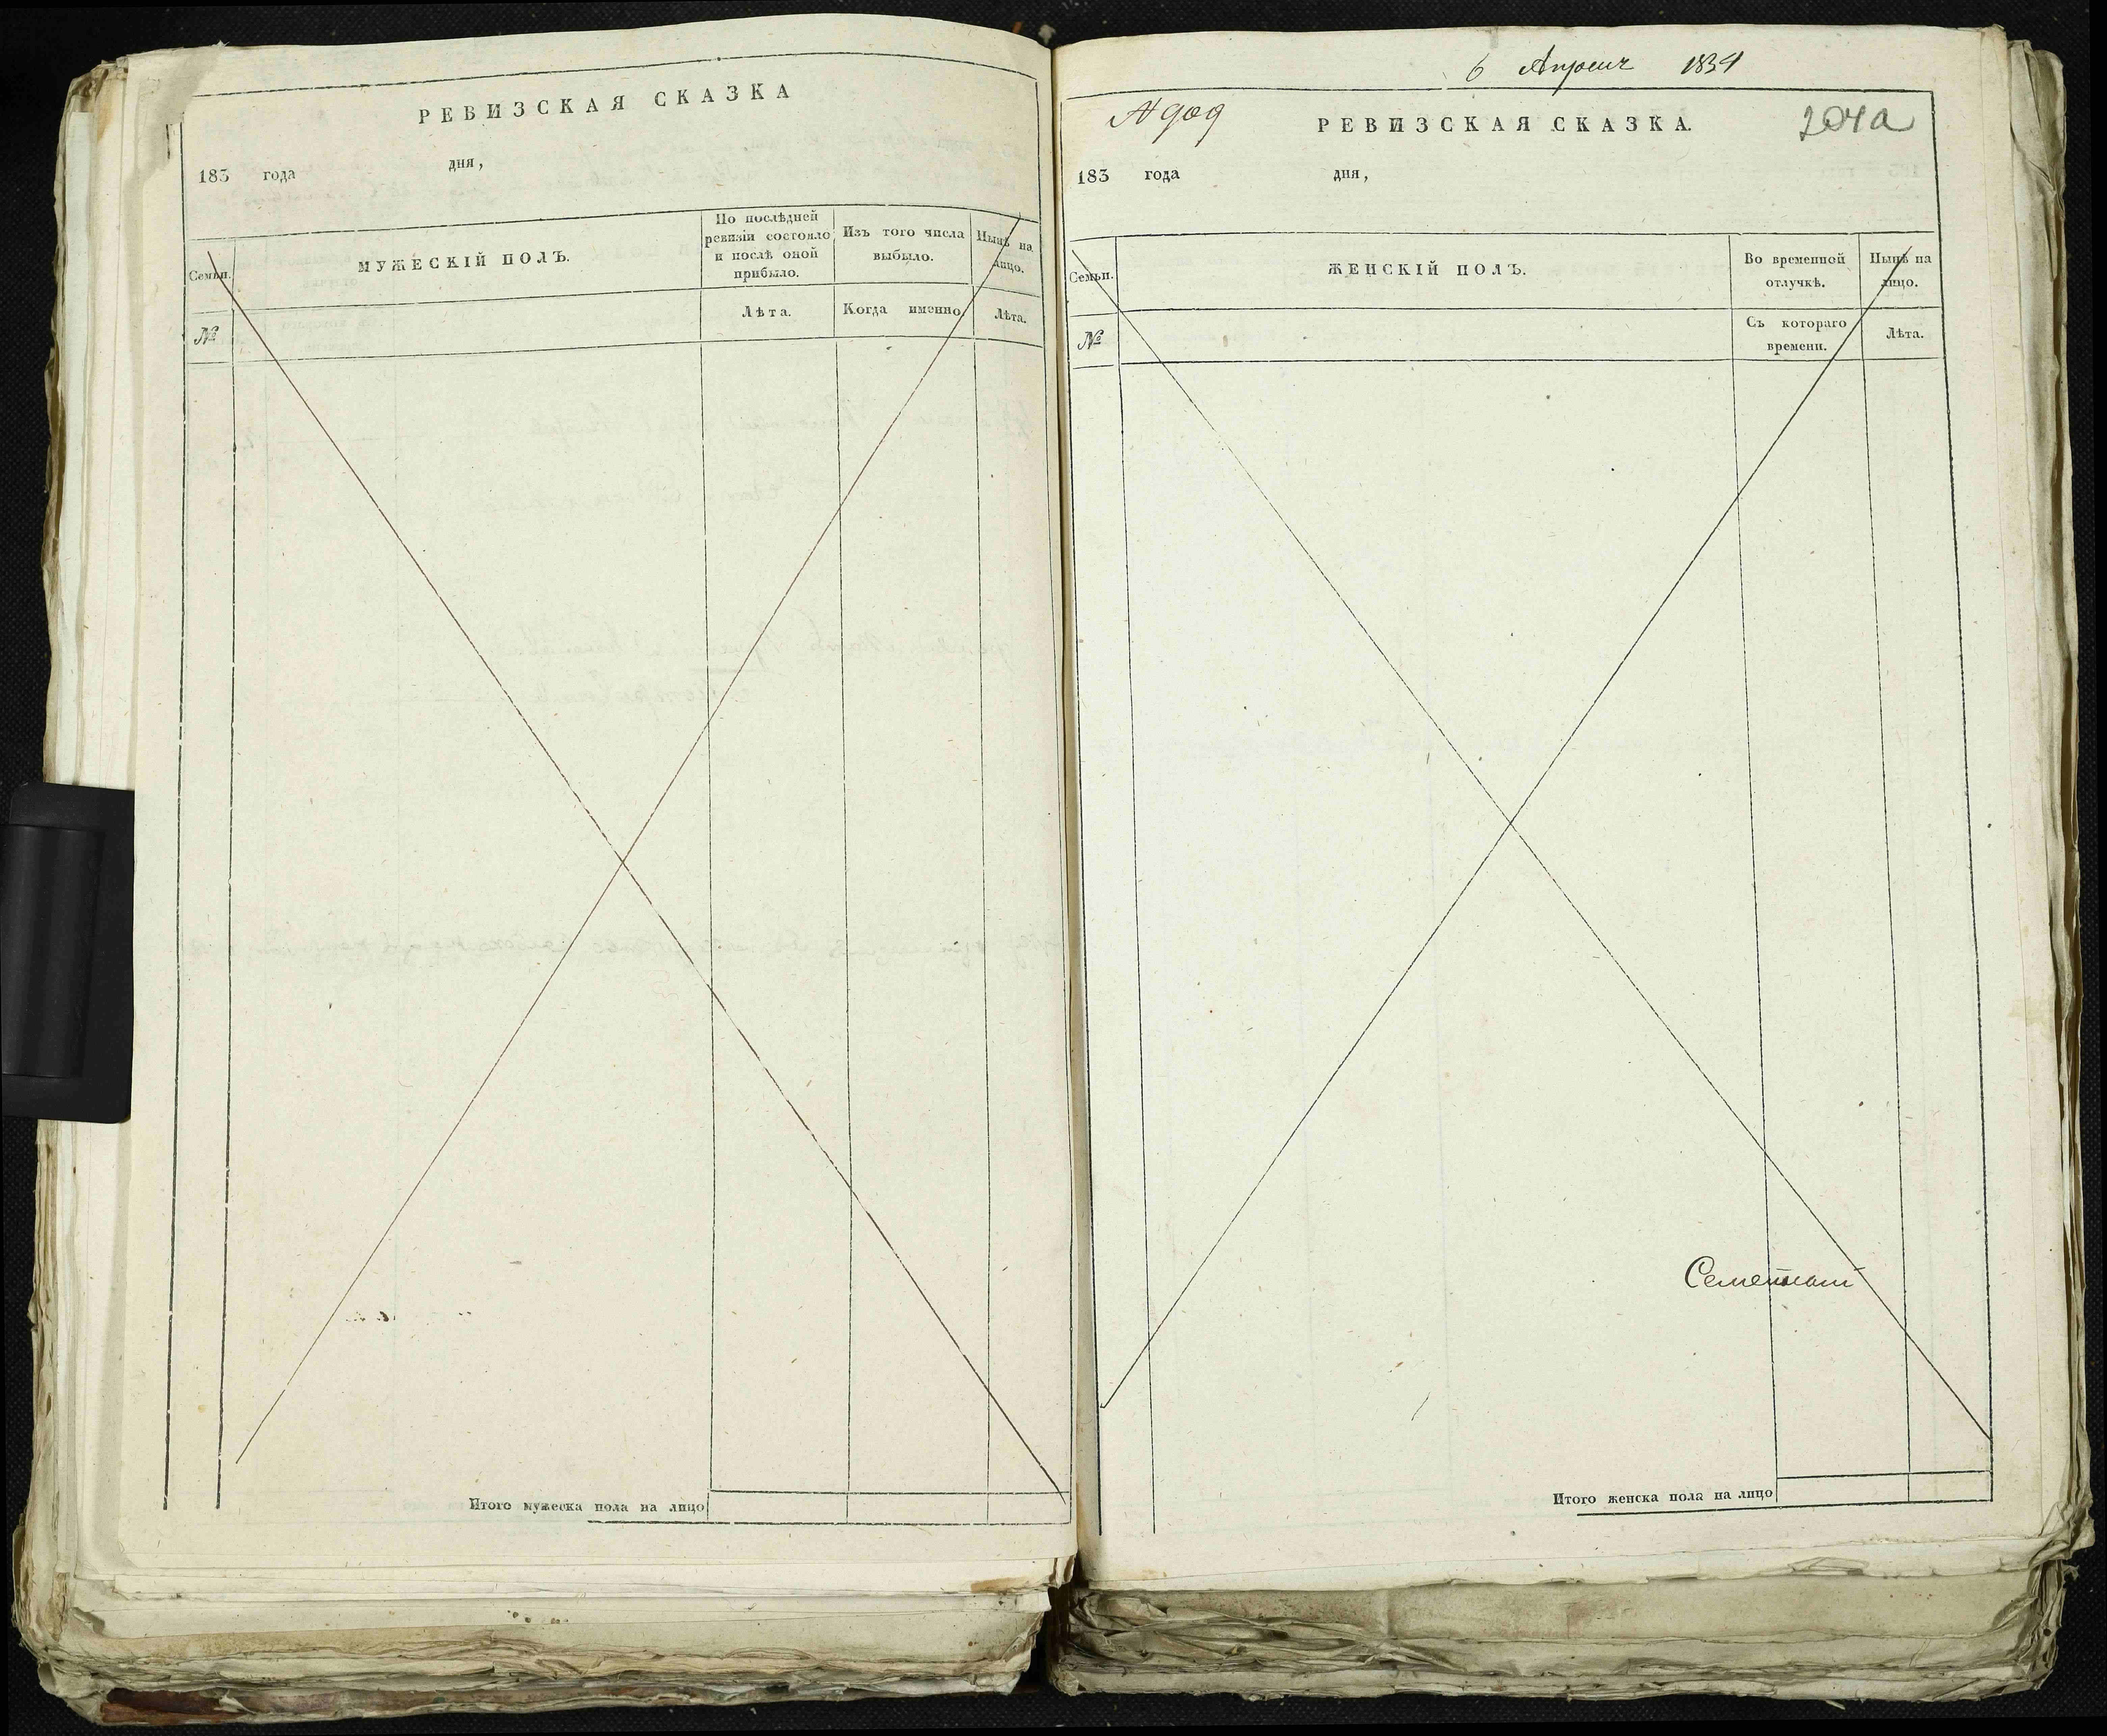 РЕВИЗСКАЯ СКАЗКА
183 года дня,
Семьи.
МУЖЕСКІЙ ПОЛЪ.
По послѣдней ревизіи состояло и послѣ оной прибыло.
Изъ того числа выбыло.
Нынѣ на лицо.
№
Лѣта.
Когда именно.
Лѣта.
Итого мужеска пола на лицо
6 Апреля 1834
204а
РЕВИЗСКАЯ СКАЗКА.
183 года дня,
Семьи.
ЖЕНСКІЙ ПОЛЪ.
Во временной отлучкѣ.
Нынѣ на лицо.
№
Съ котораго времени.
Лѣта.
Итого женска пола на лицо